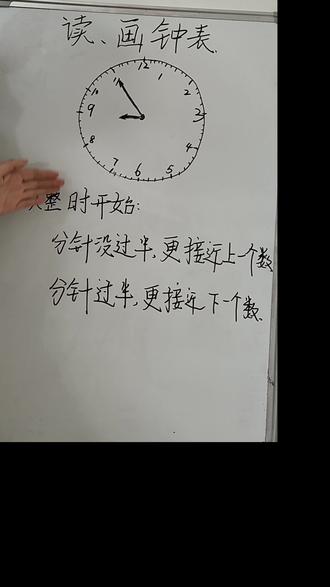 读、画钟表.
12
1
2
3
4
5
6
7
8
9
11
整时开始:
分针没过半,更接近上一个数
分针过半,更接近下一个数.